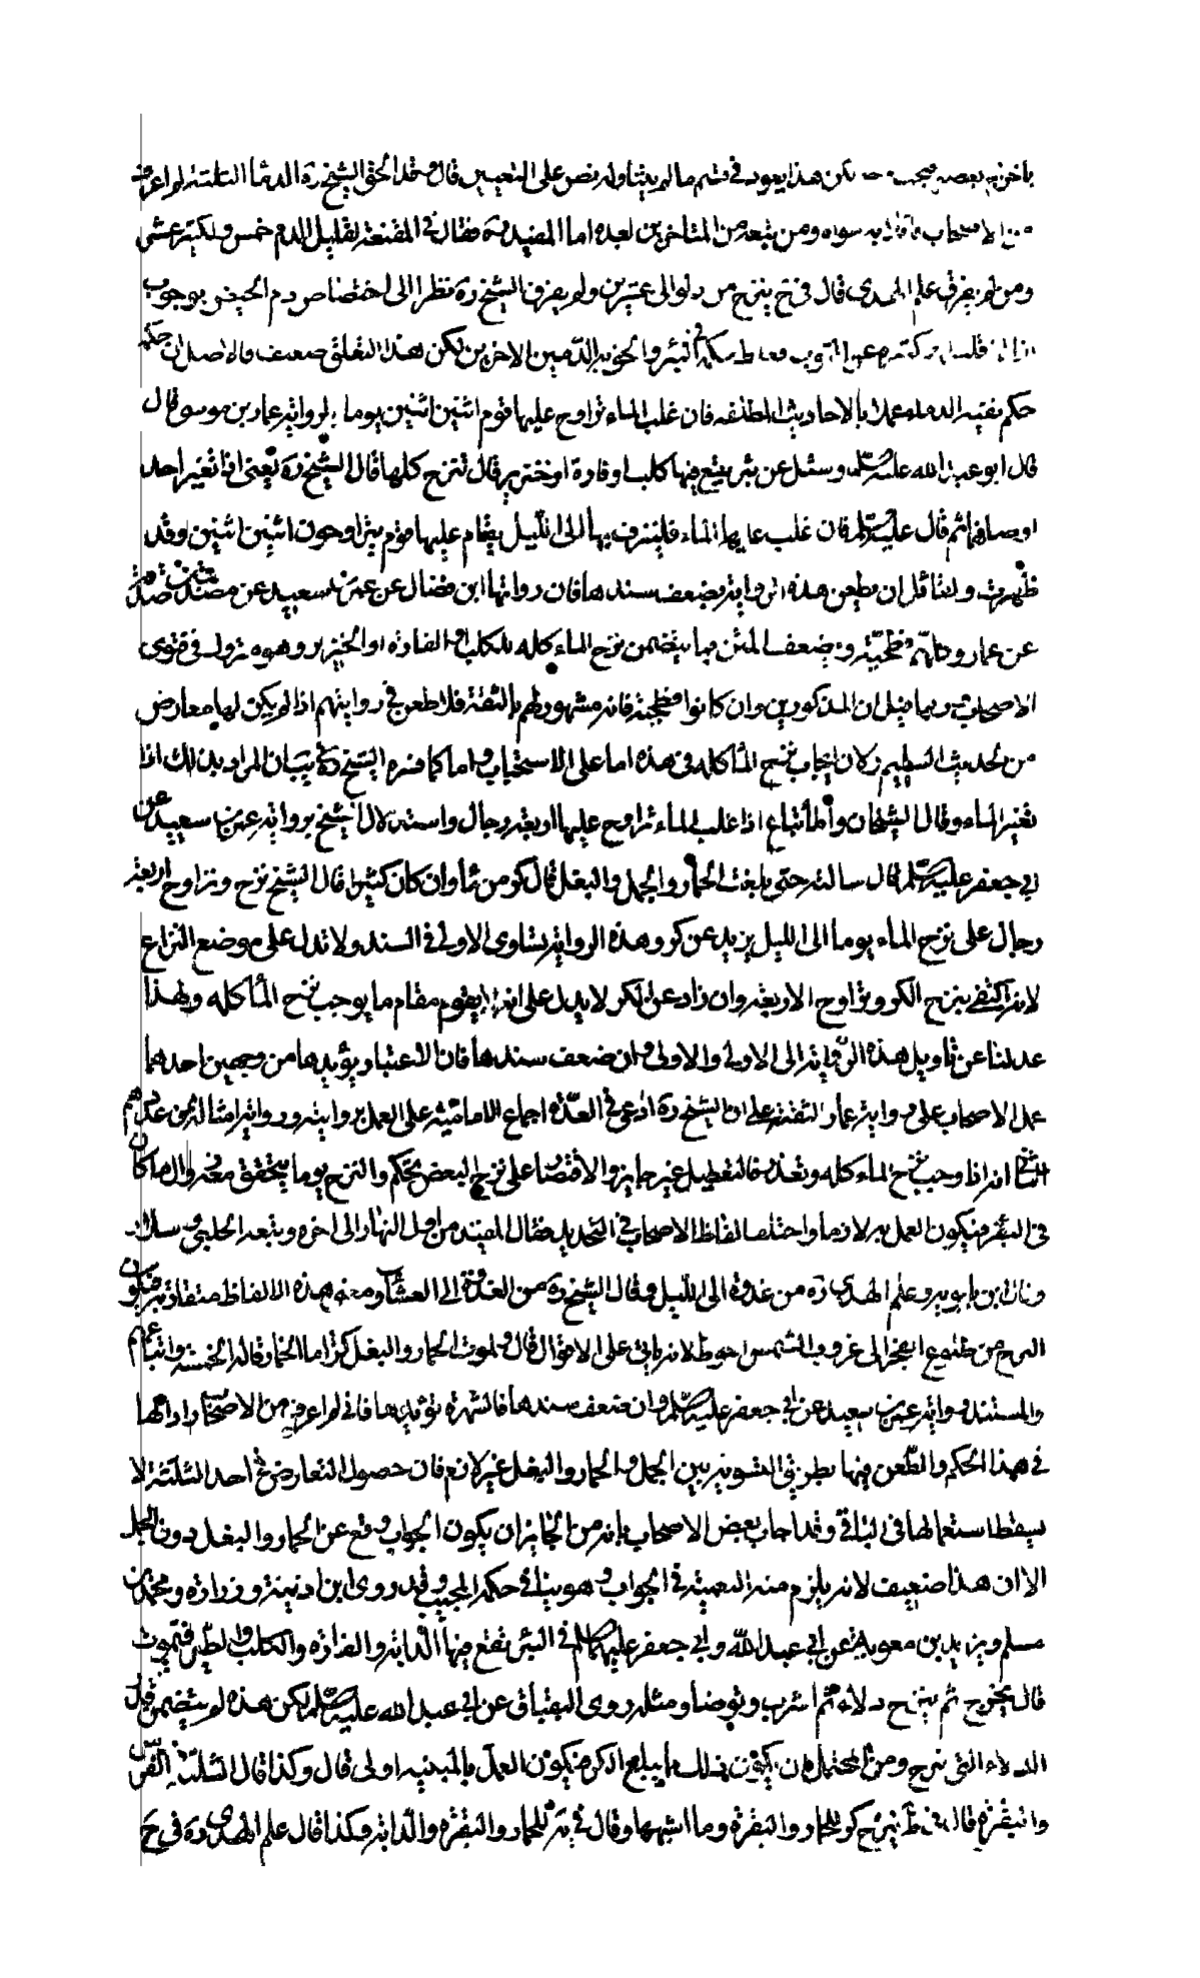 لكن هذا يعود في قسم ما لم يتناوله نص على التعيين قال وقد الحق الشيخ ره الدماء الثلثة ولم اعرف
من الاصحاب قائلا به سواه ومن تبعه من المتاخرين لعبده اما المفيد ره فقال في المقنعة لقليل الدم خمس ولكثيره عشر
ومن لم يفرق علم الهدى قال في ح ينزح من دلو الى عشرين ولم يفرق الشيخ ره نظرا الى اختصاص دم الحيض بوجوب
ازالة قليله وكثيره عن الثوب في البئر والحق به الدمين الاخرين لكن هذا التعلق ضعيف فالاصل ان حكمه
حكم بقية الدماء عملا بالاحاديث المطلقه فان غلب الماء تراوح عليها قوم اثنين اثنين يوما لرواية عمار بن موسى قال
قال ابو عبد الله عليه السلم وسئل عن بئر يقع فيها كلب او فارة او خنزير قال تنزح كلها قال الشيخ ره يعنى اذا تغير احد
اوصافها ثم قال عليه السلم فان غلب عليها الماء فلينزف يها الى الليل يقام عليها قوم يتراوحون اثنين اثنين وقد
طهرت ولقائل ان يطعن هذه الرواية بضعف سندها فان رواتها ابن فضال عن عمرو بن سعيد عن مصدق بن صدقة
عن عمار وكلهم فطحية وبضعف المتن بما يتضمن نزح الماء كله للكلب والفارة او الخنزير وهو متروك في فتوى
الاصحاب وربما قيل ان المذكورين وان كانوا فطحية فانه مشهود لهم بالثقة فلا طعن في روايتهم اذا لم يكن لها معارض
من الحديث السليم ولان ايجاب نزح الماء كله في هذه اما على الاستحباب واما كما فسره الشيخ ره ببيان المراد بذلك اذا
تغير الماء وقال الشيخان والاتباع اذا غلب الماء تراوح عليها اربعة رجال واستدلال الشيخ برواية عمرو بن سعيد عن
ابي جعفر عليه السلم قال سالته حتى بلغت الحمار والجمل والبغل قال كر من ماء وان كان كثيرا قال الشيخ نزح وتراوح اربعة
رجال على نزح الماء يوما الى الليل يزيد عن كر وهذه الرواية تساوى الاولى في السند ولا تدل على موضع النزاع
لانه اكتفى بنزح الكر وتراوح الاربعة وان زاد عن الكر لا يدل على انه يقوم مقام ما يوجب نزح الماء كله ولهذا
عدلنا عن تاويل هذه الرواية الى الاولى والاولى وان ضعف سندها فان الاعتبار يؤيدها من وجهين احدهما
عمل الاصحاب على رواية عمار لثقته على ان الشيخ ره ادعى في العدة اجماع الامامية على العمل بروايته ورواية امثاله ممن عدهم
الثاني انه اذا وجب نزح الماء كله وتعذر فالتعطيل غير جايز والاقتصار على نزح البعض تحكم والنزح يوما يتحقق معه زوال ما كان
في البئر فيكون العمل به لازما واختلف الفاظ الاصحاب في التحديد فقال المفيد من اول النهار الى اخره وتبعه الحلبى وسلار
وقال ابن بابويه وعلم الهدى ره من غدوة الى الليل وقال الشيخ ره من الغدوة الى العشاء ومعنى هذه الالفاظ متقاربة فيكون
النزح من طلوع الفجر الى غروب الشمس احوط لانه ياتى على الاقوال قال ولموت الحمار والبغل كر اما الحمار فقاله الخمسة واتباعهم
والمستند رواية عمرو بن سعيد عن ابي جعفر عليه السلم وان ضعف سندها فالشهرة تؤيدها فانى لم اعرف من الاصحاب رادا لها
في هذا الحكم والطعن فيها بطريق التسوية بين الجمل والحمار والبغل غير لازم فان حصول التعارض في احد الثلثة لا
يسقط استعمالها في الباقي وقد اجاب بعض الاصحاب بانه من الجايز ان يكون الجواب وقع عن الحمار والبغل دون الجمل
الا ان هذا ضعيف لانه يلزم منه التعمية في الجواب وهو ينافى حكمة المجيب وقد روى ابن اذينة وزرارة ومحمد بن
مسلم وبريد بن معوية عن ابي عبد الله وابي جعفر عليهما السلم في البئر تقع فيها الدابة والفارة والكلب والطير فتموت
قال يخرج ثم ينزح دلاء ثم اشرب وتوضا ومثله روى البقباق عن ابي عبد الله عليه السلم لكن هذه لم يتضمن قدر
الدلاء التى تنزح ومن المحتمل ان يكون ذلك ما يبلغ الكر فيكون العمل بالمبينه اولى قال وكذا قال الثلثة في الفرس
والبقرة قال في ط ينزح كر للحمار والبقرة وما اشبهها وقال في يه كر للحمار والبقرة والدابة وكذا قال علم الهدى ره في ح